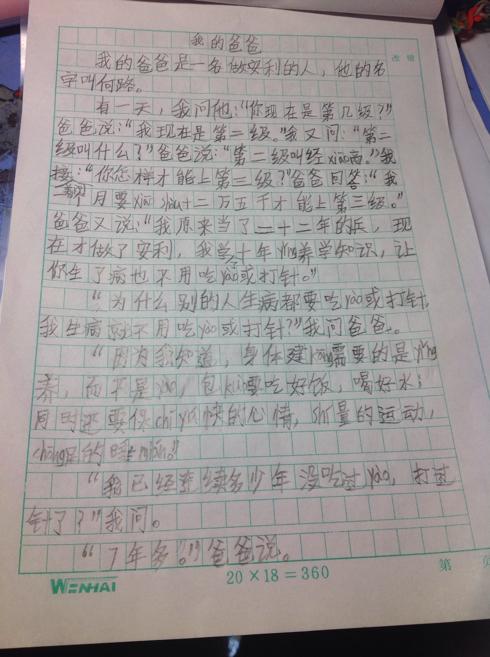 我的爸爸
改错
我的爸爸是一名做安利的人，他的名
字叫何路。
有一天，我问他：“你现在是第几级？”
爸爸说：“我现在是第二级。”我又问：“第二
级叫什么？”爸爸说：“第二级叫经xiāo商。”我
接：“你怎样才能上第三级？”爸爸回答：“我
月要xiāo shòu十二万五千才能上第三级。”
爸爸又说：“我原来当了二十二年的兵，现
在才做了安利，我学十年yíng养学知识，让
你生了病也不用吃yào或打针。”
“为什么别的人生病都要吃yào或打针，
我生病就不用吃yào或打针？”我问爸爸。
“因为我知道，身体建kāng需要的是yíng
养，而不是yào，包kuò要吃好饭，喝好水；
同时还要保chí愉快的心情，适量的运动，
chōng足的睡mián。”
“我已经连续多少年没吃过yào，打过
针了？”我问。
“7年多。”爸爸说。
WENHAI
20×18=360
第 页